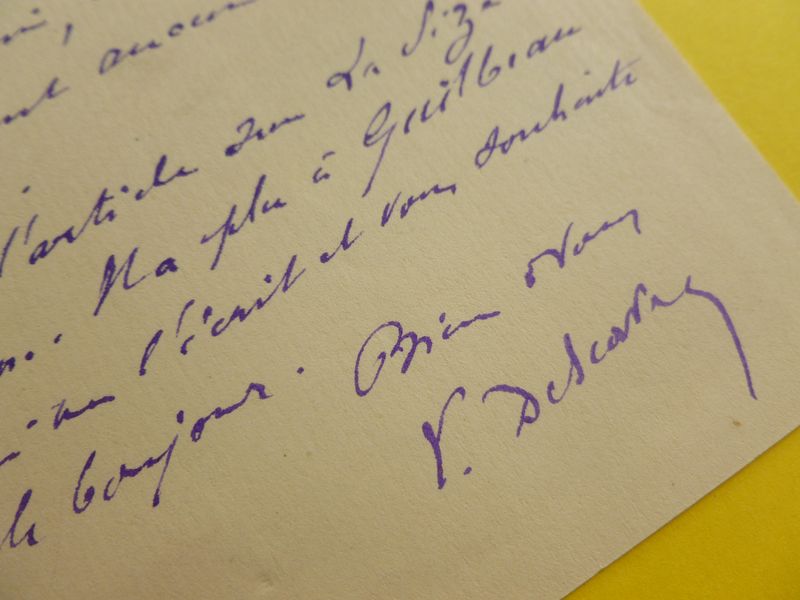 aucun
l'article sur La Size
. Il a plu à Guilbeau
l'écrit et vous souhaite
le bonjour. Bien à vous
V. Descaves